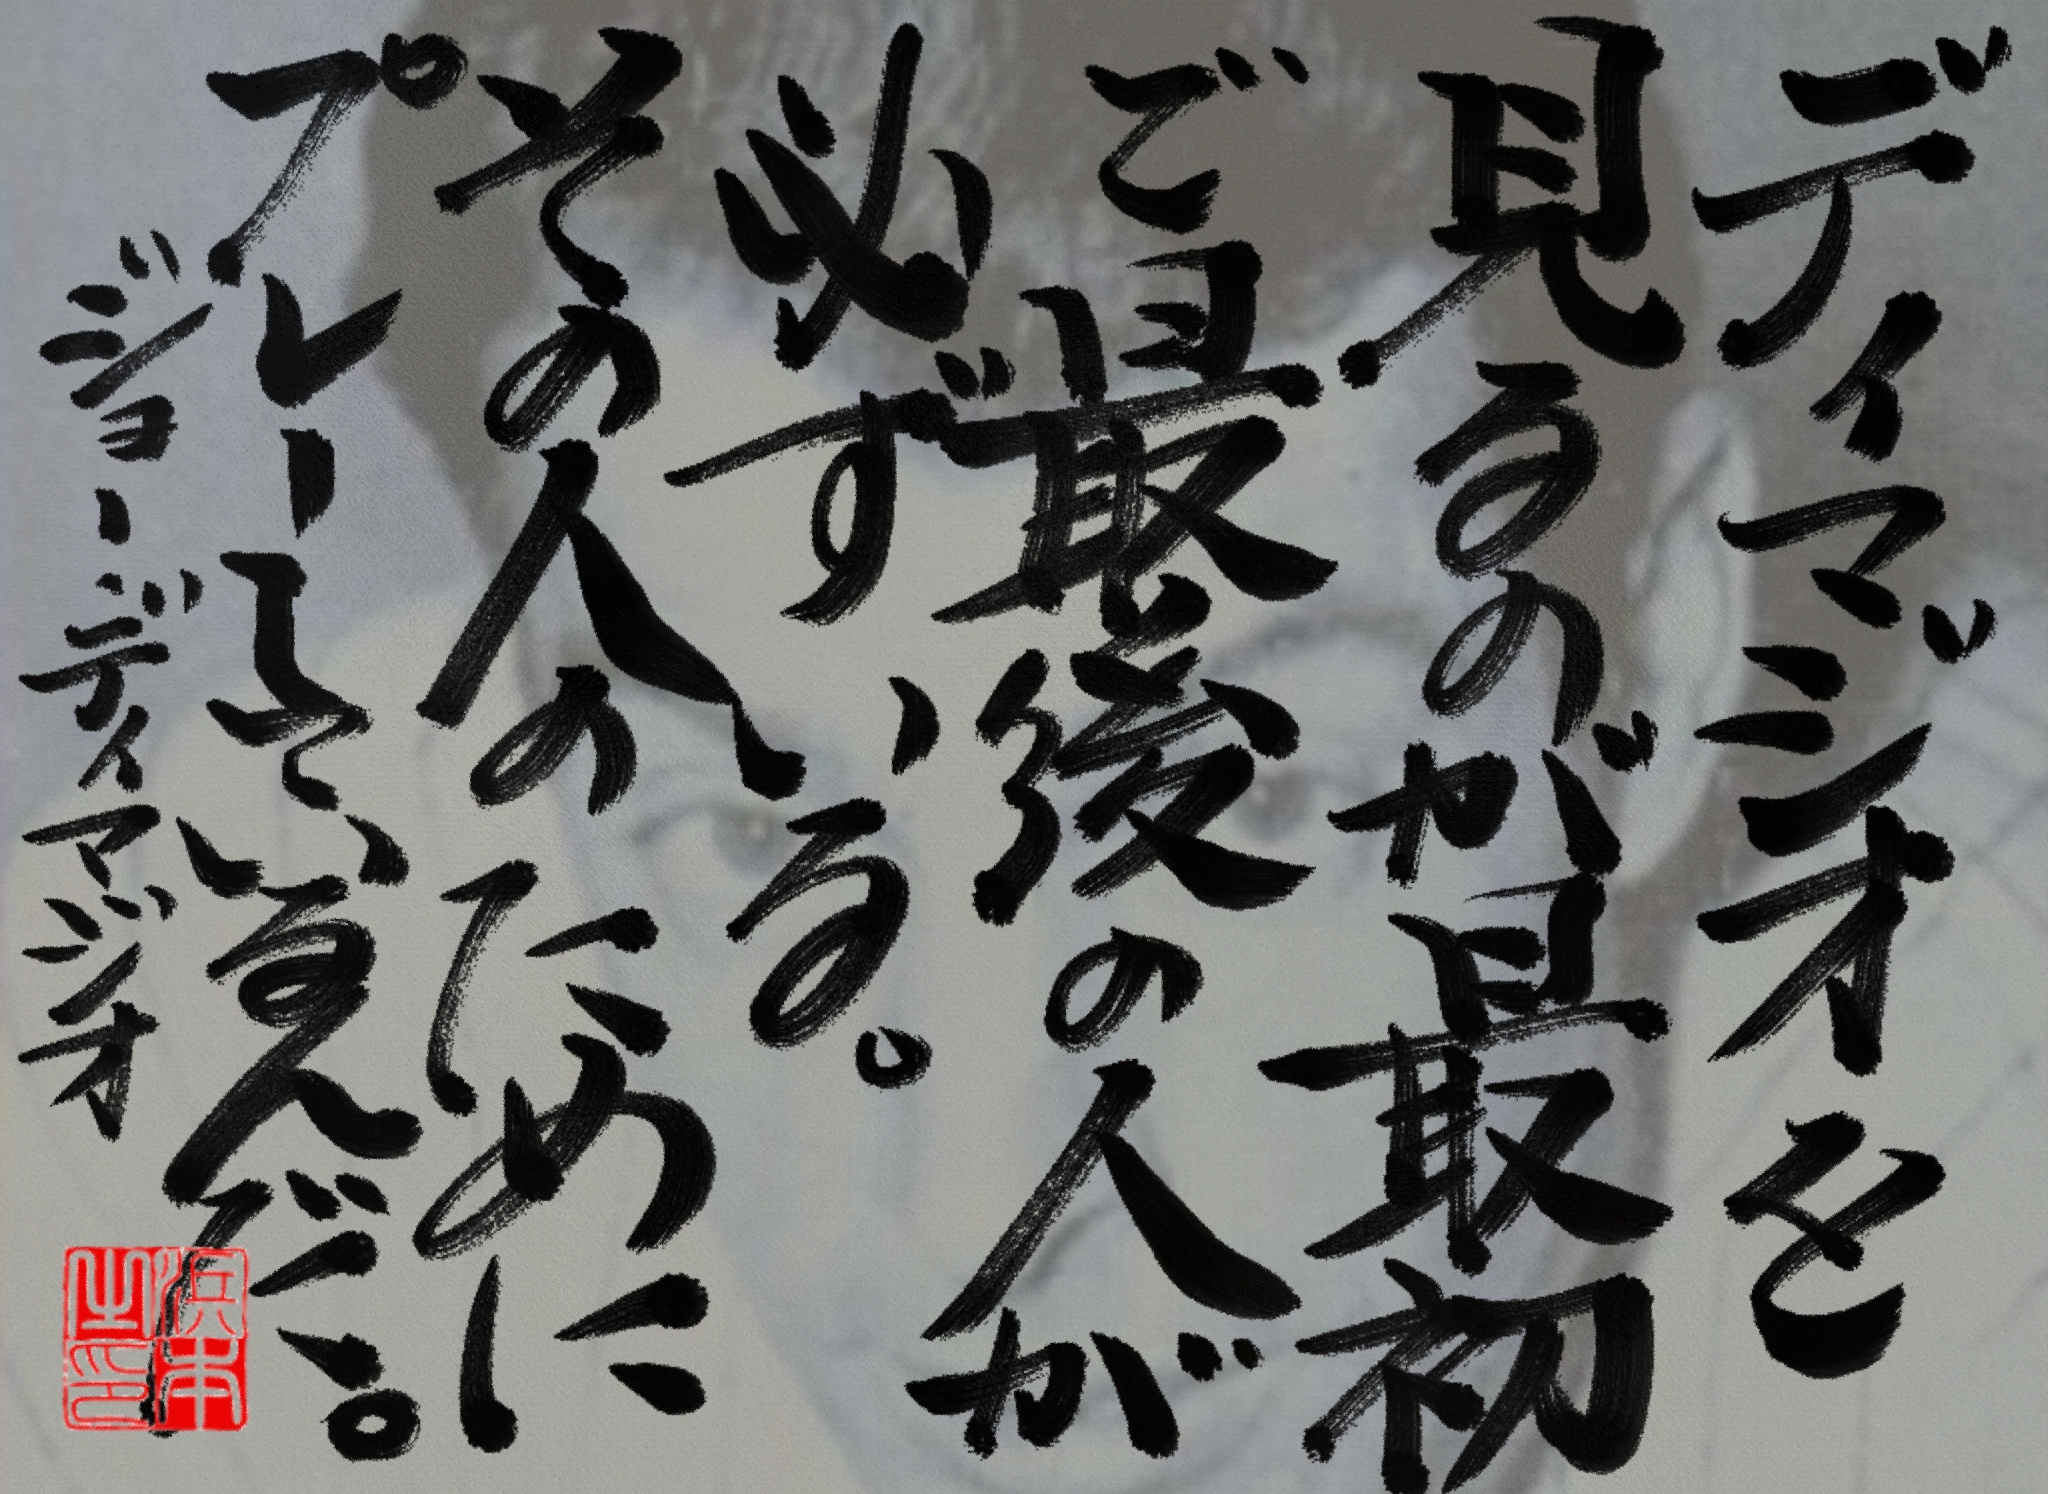 ディマジオを
見るのが最初
で最後の人が
必ず、いる。
その人のために
プレーしているんだ。
ジョー・ディマジオ